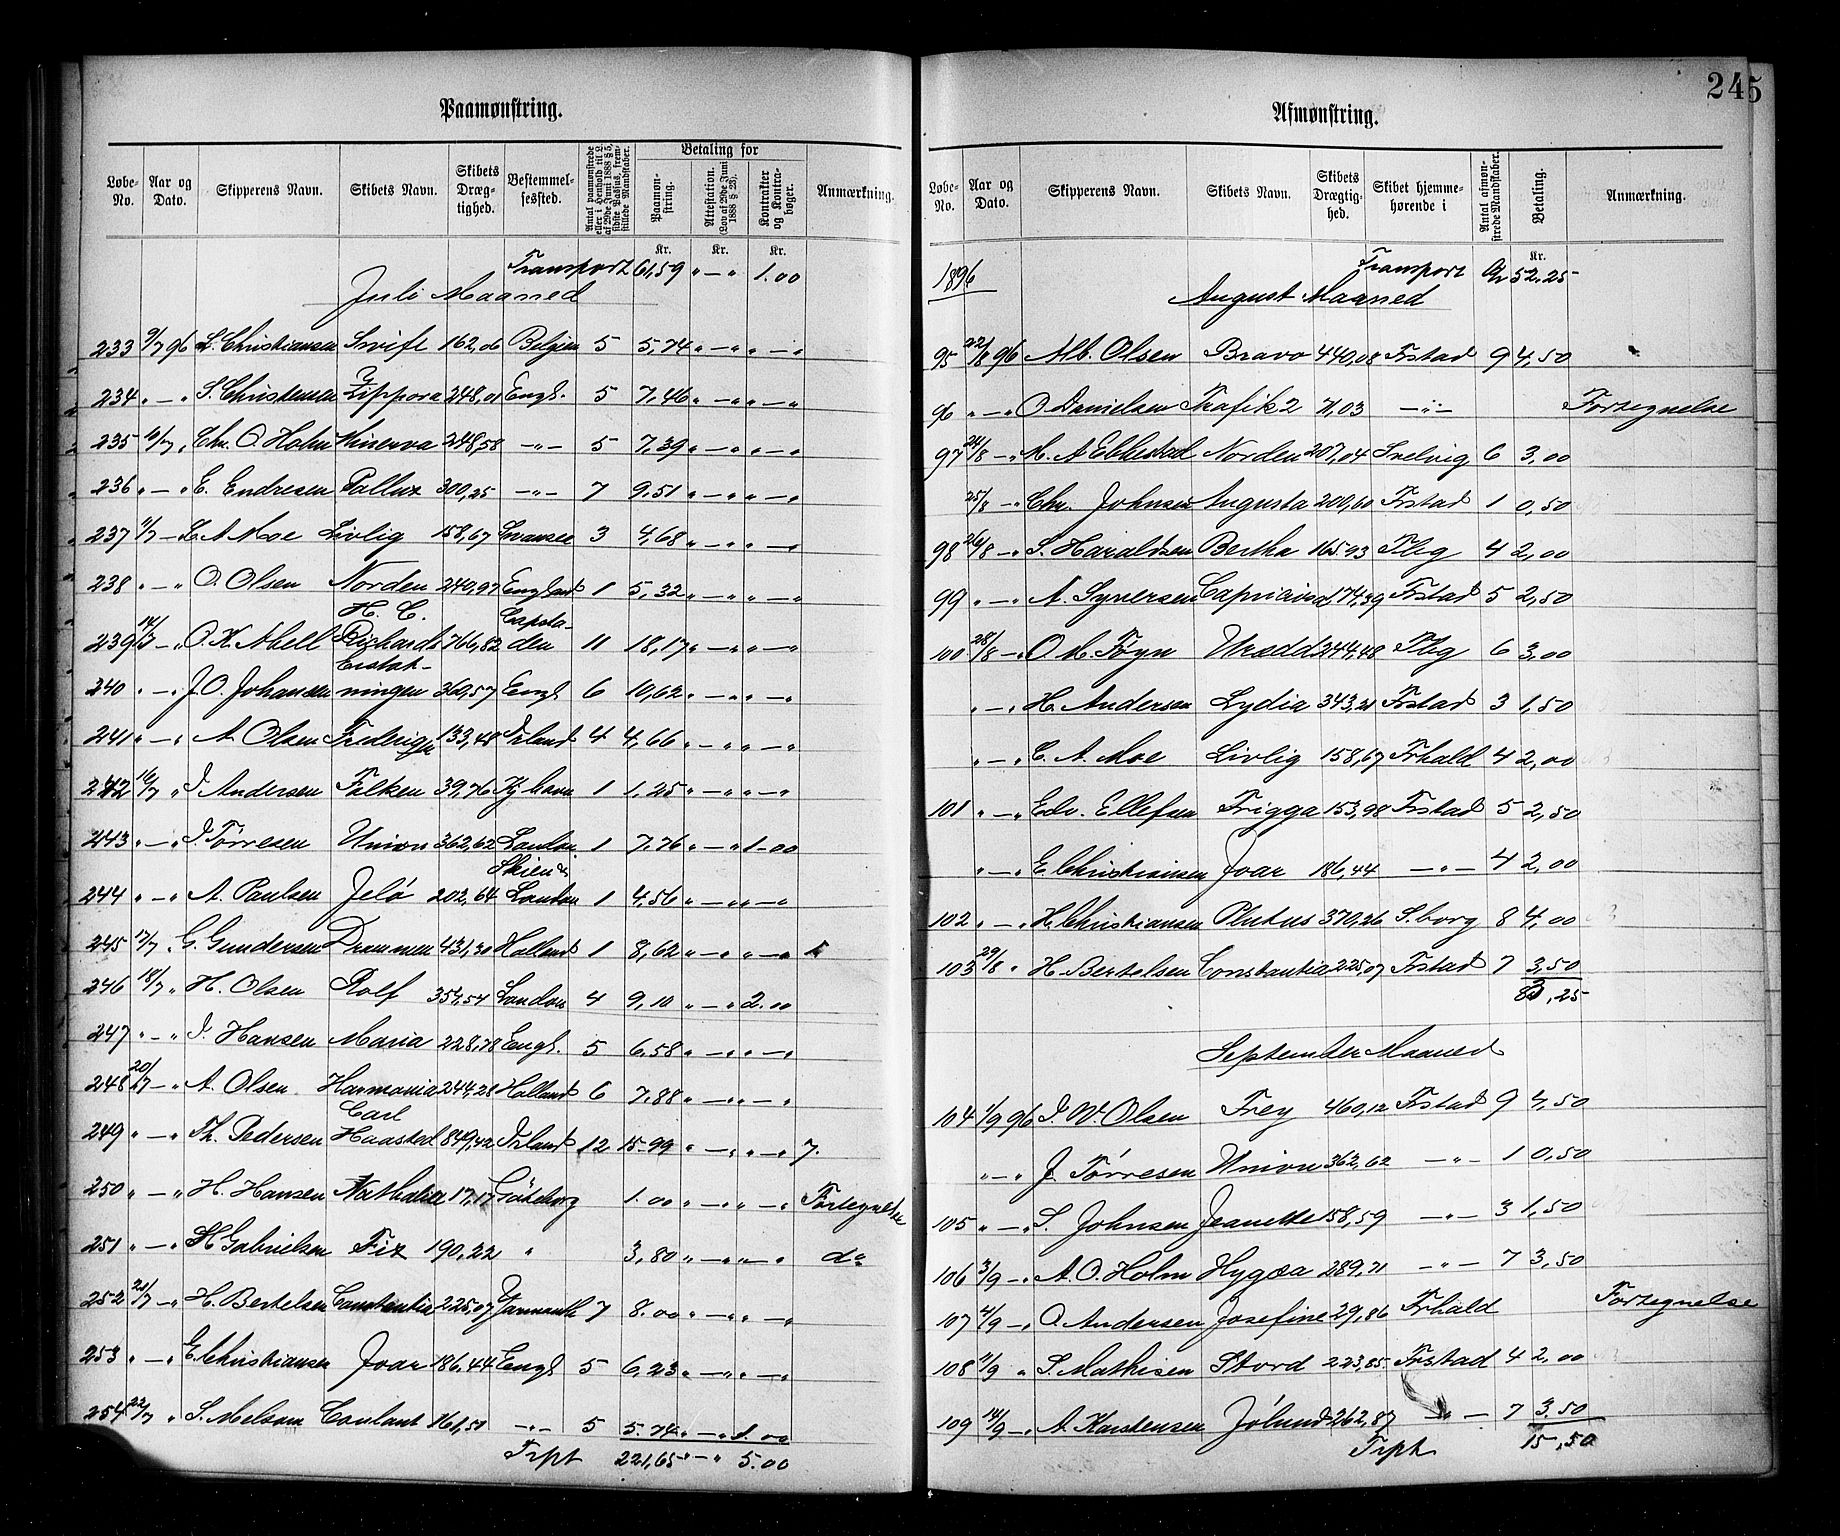 245
Paamønstring.
Løbe-No. Aar og Dato. Skipperens Navn. Skibets Navn. Skibets Dræg-tighed. Bestemmel-sessted. Antal paamønstrede eller i Henhold til L. af 29de Juni 1888 § 5, sidste Passus, frem-stillede Mandskaber. Betaling for Paamøn-string. Attestation. (Lov af 29de Juni 1888 § 23). Kontrakter og Kontra-bøger. Anmærkning.
Kr. Kr. Kr.
Transport 61,59 " — " 1.00
Juli Maaned
233 9/7 96 L. Christiansen Swift 162,06 Belgien 5 5,74 " — " " — "
234 " — " S. Christensen Zippora 248,01 Engl. 5 7,46 " — " " — "
235 10/7 " Chr. O Holm Minerva 248,58 — " — 5 7,39 " — " " — "
236 " — " E. Endresen Pollux 300,25 — " — 7 9,51 " — " " — "
237 11/7 — " L A Moe Livlig 158,67 Swansea 3 4,68 " — " " — "
238 " — " O. Olsen Norden 240,97 England 1 5,32 " — " " — "
239 14/7 — " O. K. Abell H. C. Richards 766,82 Capsta-den 11 18,17 " — " " — "
240 " — " J. O. Johansen Erstat-ningen 369,57 Engl 6 10,62 " — " " — "
241 " — " A. Olsen Frederikke 133,48 Irland 4 4,66 " — " " — "
242 16/7 " J Andersen Falken 39,76 Kjbhavn 1 1,25 " — " " — "
243 " — " J. Tørresen Union 362,62 London 1 7,76 " — " 1.00
244 " — " A. Paulsen Jelø 202,64 Skien & London 1 4,56 " — " " — "
245 17/7 " G. Gundersen Drammen 431,30 Holland 1 8,62 " — " " — "
246 18/7 " H. Olsen Rolf 354,54 London 4 9,10 " — " 2.00
247 " — " J. Hansen Maria 228,78 Engl. 5 6,58 " — " " — "
248 20/7 — " A. Olsen Harmonia 244,28 Holland 6 7,88 " — " " — "
249 " — " Th. Pedersen Carl Haasted 849,42 Irland 12 15.99 " — " " — " 7.
250 " — " H. Hansen Nathalia 17,17 Göteborg 1.00 " — " " — " Fortegnelse
251 " — " H Gabrielsen Fix 190,22 " 3,80 " — " " — " do
252 21/7 — " H. Bertelsen Constantia 225,07 Yarmouth 7 8.00 " — " " — "
253 " — " E. Christiansen Joar 186,44 Engl 5 6,23 " — " " — "
254 22/7 " S. Melsom Coulant 161,51 — " — 5 5.74 " — " 1.00
Trpt 221,65 " — " 5.00
Afmønstring.
Løbe-No. Aar og Dato. Skipperens Navn. Skibets Navn. Skibets Drægtig-hed. Skibet hjemme-hørende i Antal afmøn-strede Mandskaber. Betaling. Anmærkning.
Kr.
1896 Transport Kr 52.25
August Maaned
95 22/8 96 Alb. Olsen Bravo 440,08 Frstad 9 4,50
96 " — " O Danielsen Trafik 2 71,03 — " — Fortegnelse
97 24/8 — " M. A Ebbestad Norden 207,04 Svelvig 6 3,00
25/8 — " Chr. Johnsen Augusta 200,60 Frstad 1 0,50
98 26/8 — " S. Haraldsen Bertha 165,93 Tbg 4 2,00
99 " — " A. Syversen 174,39 Frstad 5 2,50
100 28/8 — " O M. Føyn Urædd 244,48 Tbg 6 3,00
" — " H. Andersen Lydia 343,21 Frstad 3 1,50
" — " C. A. Moe Livlig 158,67 Frhald 4 2,00
101 " — " Edv. Ellefsen Frigga 153,98 Frstad 5 2,50
" — " E Christiansen Joar 186,44 — " — 4 2,00
102 " — " H. Christiansen Plutus 370,26 S. borg 8 4,00
103 29/8 " H. Bertelsen Constantia 225,07 Frstad 7 3,50
83,25
September Maaned
104 1/9 96 J. W. Olsen Frey 460,12 Frstad 9 4,50
" — " J. Tørresen Union 362,62 — " — 1 0,50
105 " — " S. Johnsen Jeanette 158,59 — " — 3 1,50
106 3/9 — " A. O. Holm Hygæa 289,71 — " — 7 3,50
107 4/9 — " O. Andersen Josefine 29,86 Frhald Fortegnelse
108 11/9 " S. Mathisen Stord 223,85 Frstad 4 2,00
109 14/9 — " A. Karstensen Jølund 262,87 — " — 7 3.50
Trpt 15,50